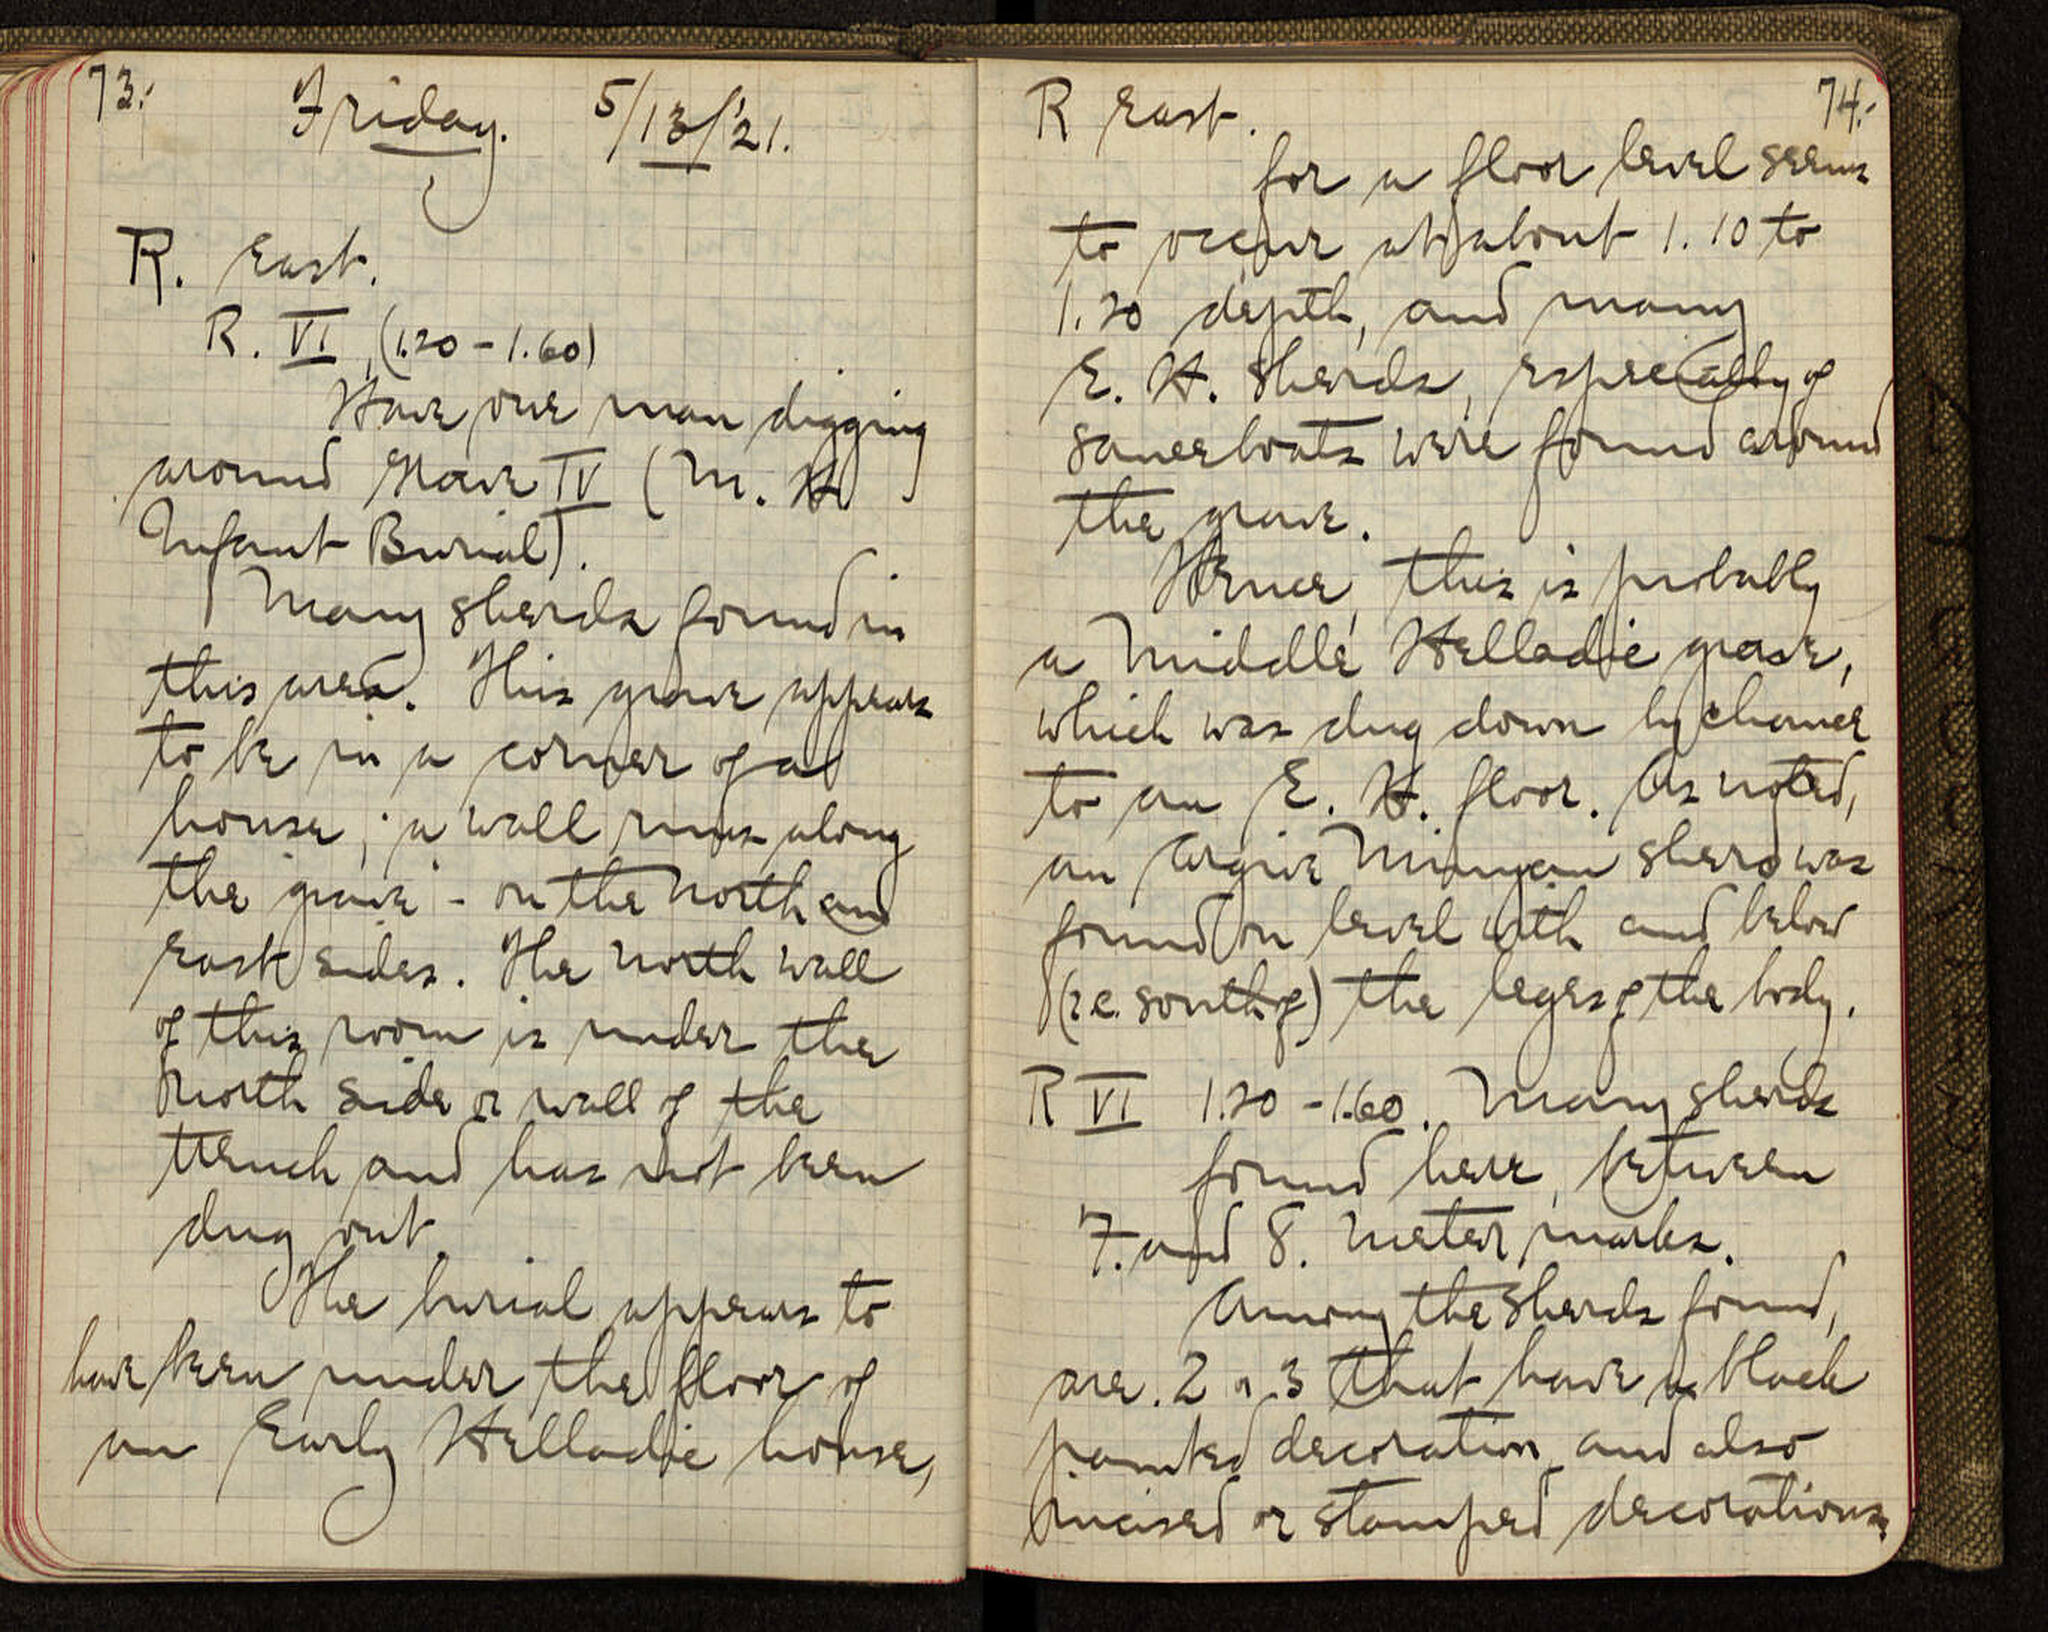 73.
Friday. 5/13/'21.
R. East.
R. VI (1.20 - 1.60)
Have one man digging
around Grave IV (M. H.
Infant Burial).
Many sherds found in
this area. This grave appears
to be in a corner of a
house; a wall runs along
the grave - on the north and
east sides. The north wall
of this room is under the
north side or wall of the
trench and has not been
dug out.
The burial appears to
have been under the floor of
an Early Helladic house,
R East. 74.
for a floor level seems
to occur at about 1.10 to
1.20 depth, and many
E. H. sherds, especially of
sauceboats were found around
the grave.
Hence, this is probably
a Middle Helladic grave,
which was dug down by chance
to an E. H. floor. As noted,
an Argive Minyan sherd was
found on level with and below
(i.e. south of) the legs of the body.
R VI 1.20 - 1.60. Many sherds
found here, between
7. and 8. meter marks.
Among the sherds found,
are 2 or 3 that have black
painted decoration and also
incised or stamped decorations.